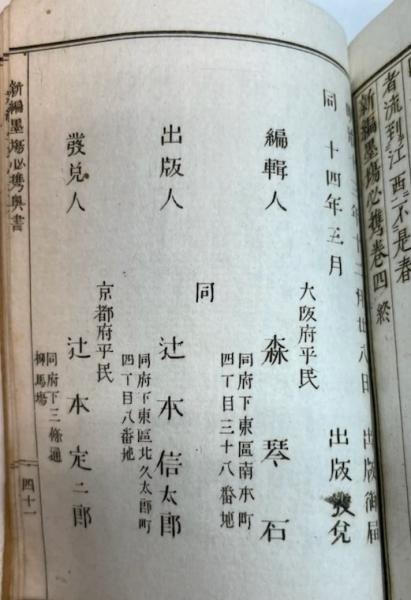 者流到江西不是春
新編墨場必攜卷四終
年十二月廿八日 出版御届
同 十四年三月 出版發兌
大阪府平民
編輯人 森琴石
同府下東區南本町
四丁目三十八番地
同
出版人 辻本信太郎
同府下東區北久太郎町
四丁目八番地
京都府平民
發兌人 辻本定二郎
同府下三條通
柳馬場
新編墨場必携奥書
四十一